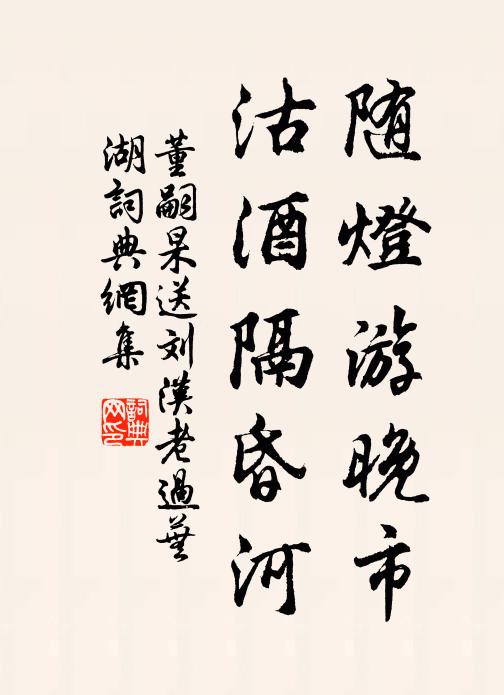 随燈游晚市
沽酒隔昏河
董嗣杲送刘漢老過蕪
湖詞典網集
詞典
网印